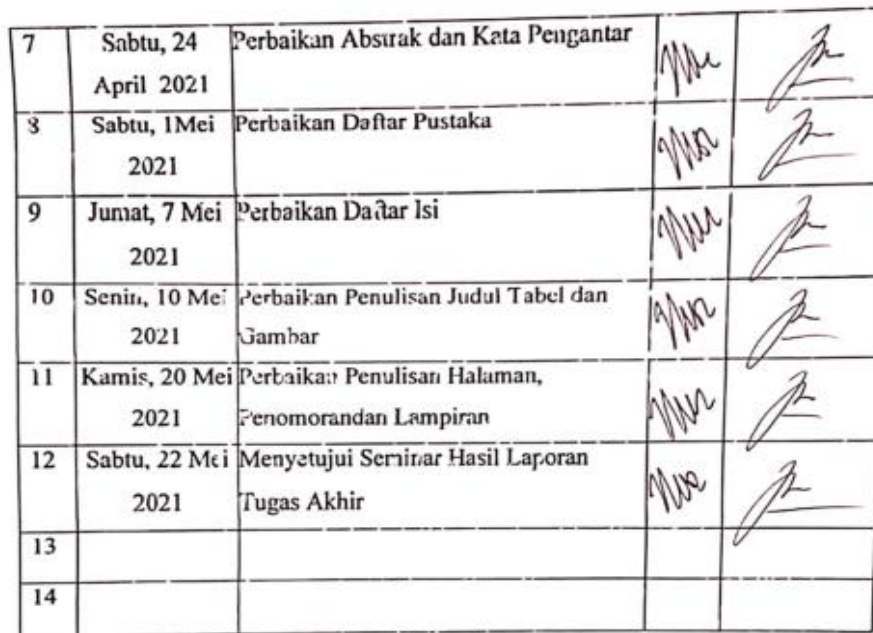 7 Sabtu, 24 Perbaikan Abstrak dan Kata Pengantar
April 2021
8 Sabtu, 1Mei Perbaikan Daftar Pustaka
2021
9 Jumat, 7 Mei Perbaikan Daftar Isi
2021
10 Senin, 10 Mei Perbaikan Penulisan Judul Tabel dan
2021 Gambar
11 Kamis, 20 Mei Perbaikan Penulisan Halaman,
2021 Penomorandan Lampiran
12 Sabtu, 22 Mei Menyetujui Seminar Hasil Laporan
2021 Tugas Akhir
13
14